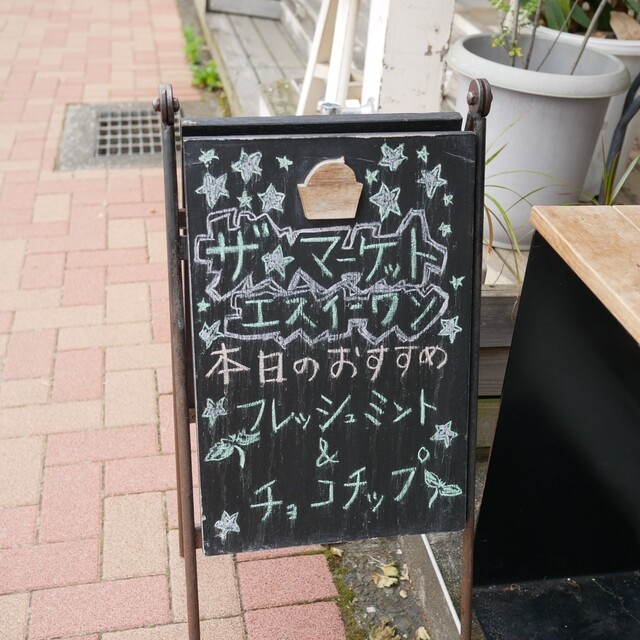 ザ★マーケット
エスイーワン
本日のおすすめ
フレッシュミント
&
チョコチップ